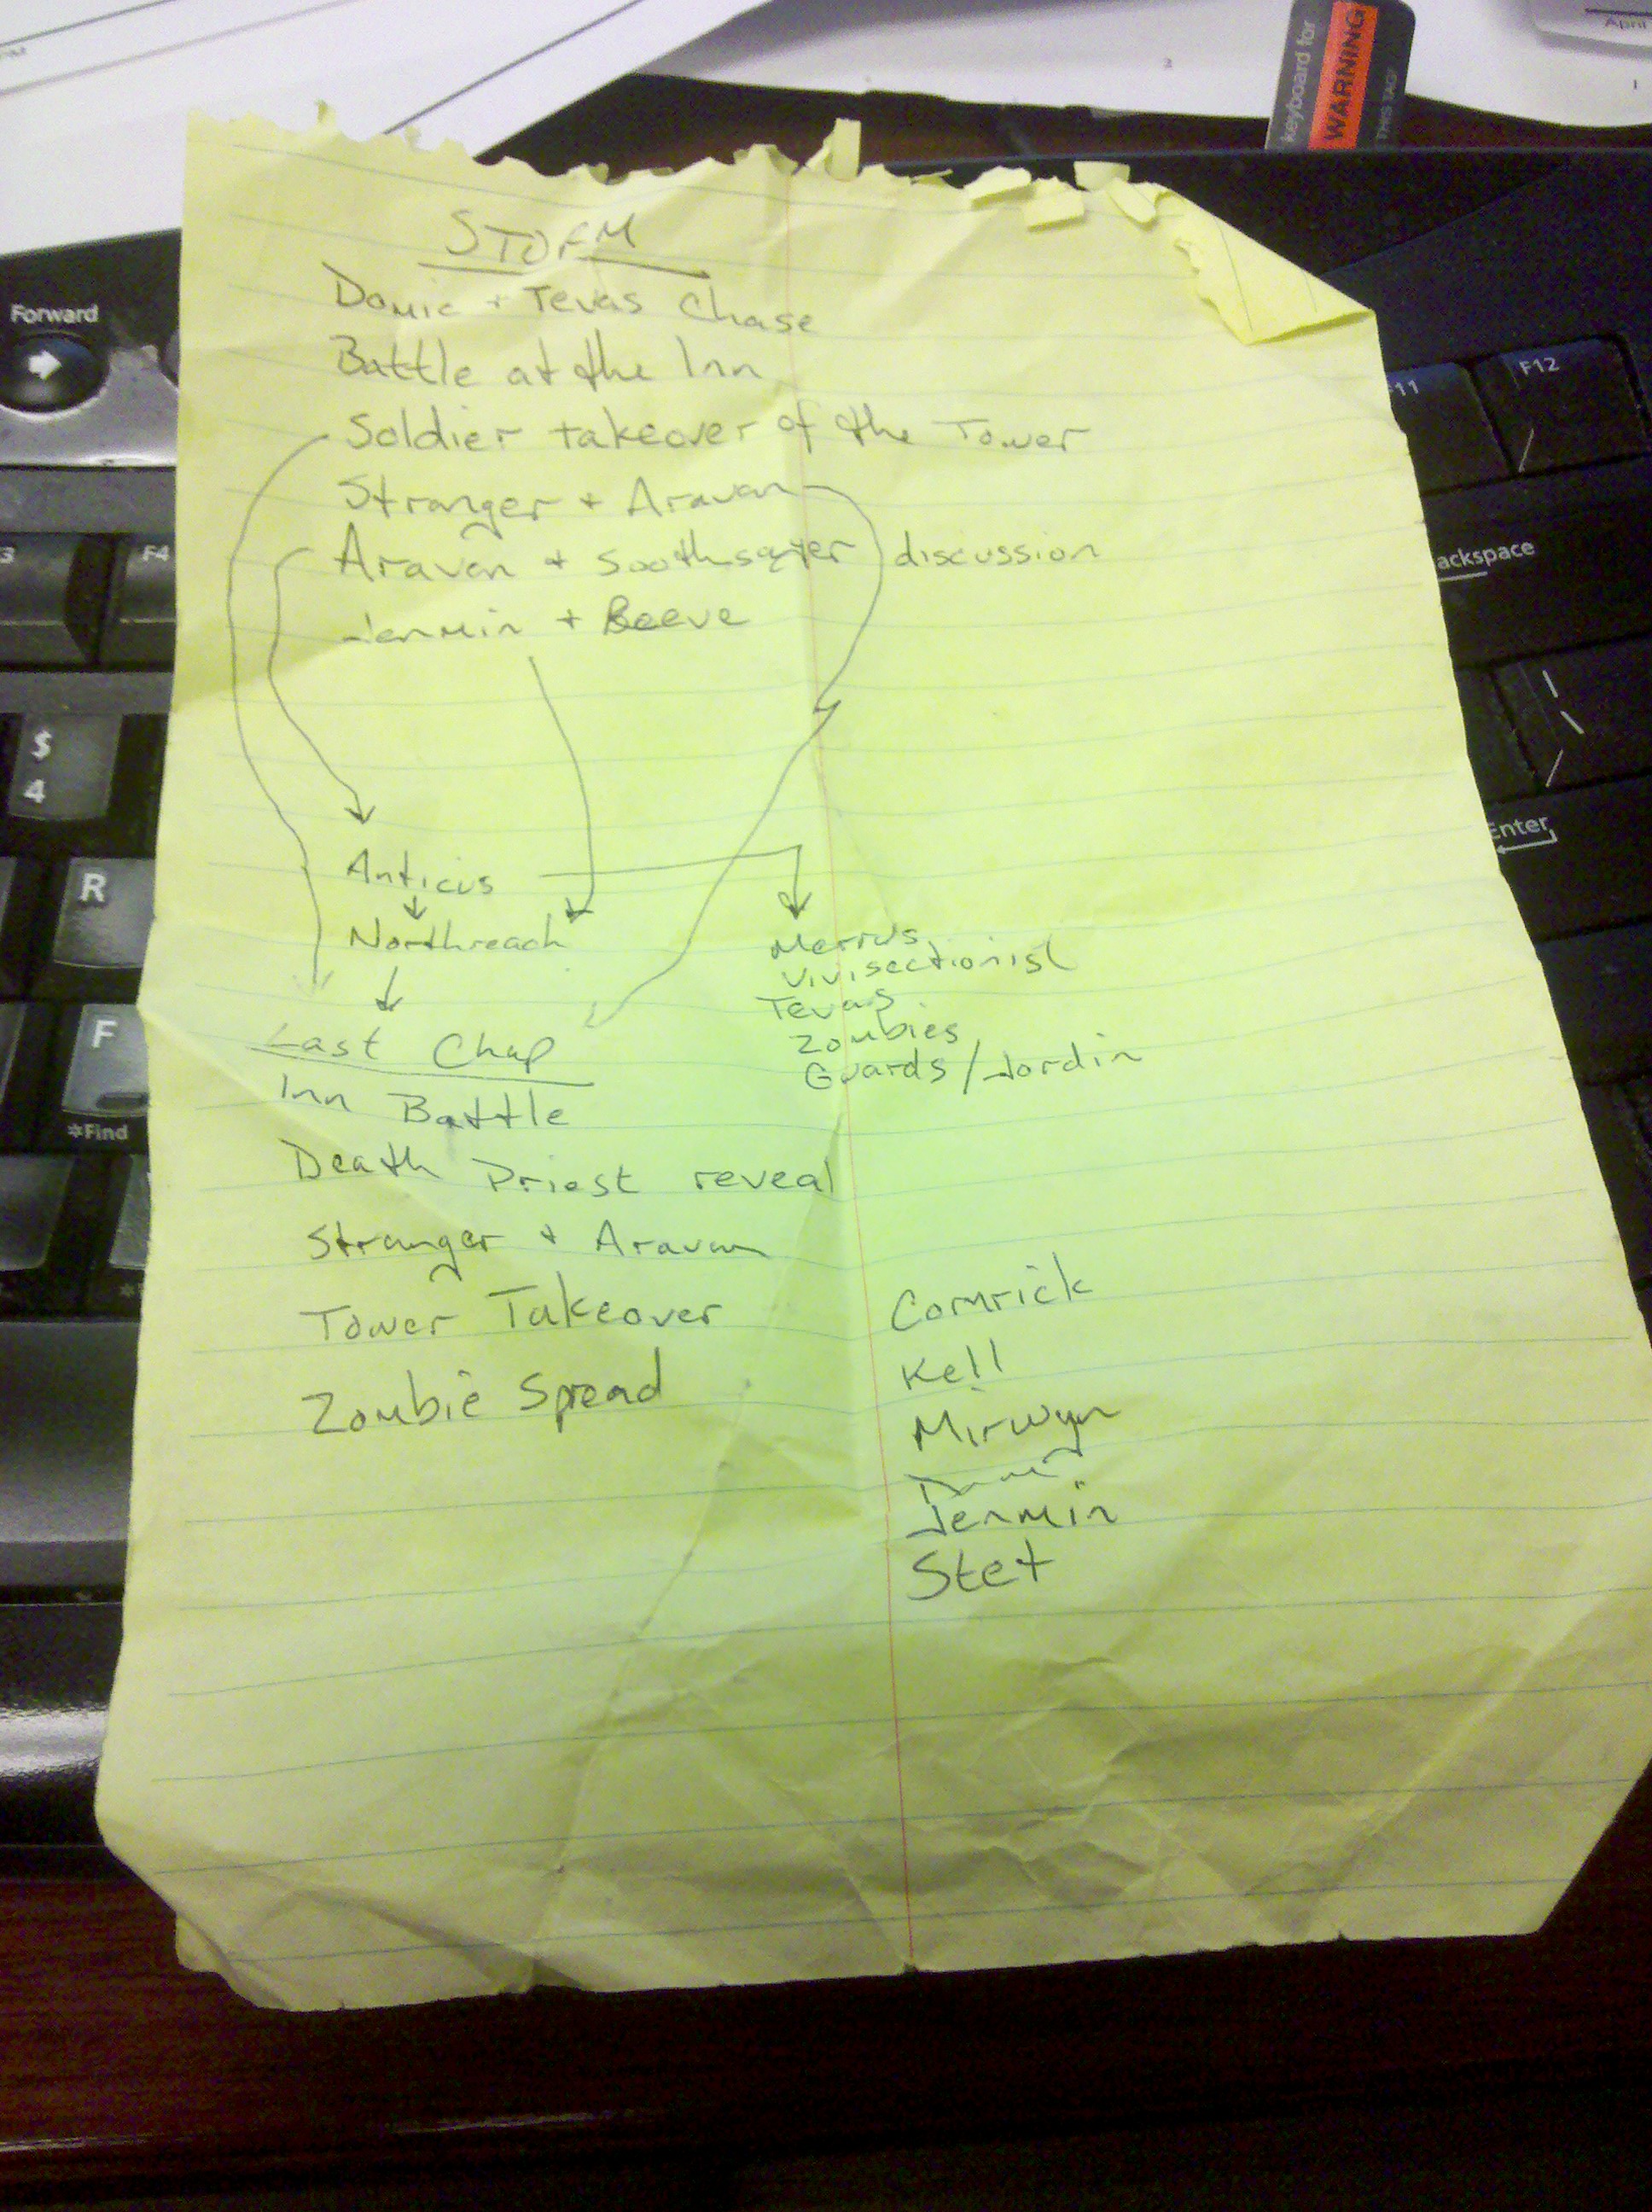 April
keyboard for
WARNING
THIS TAG!
STORM
Domic + Tevas Chase
Battle at the Inn
Soldier takeover of the Tower
Stranger + Aravan
Aravan + soothsayer discussion
Jenmin + Beeve
Anticus
Northreach
Merrus
Vivisectionist
Tevas
Zombies
Guards/Jordin
Last Chap
Inn Battle
Death Priest reveal
Stranger + Aravan
Tower Takeover
Zombie Spread
Comrick
Kell
Mirwyn
Jenmin
Stet
Forward
3
F4
$
4
R
F
*Find
11
F12
ackspace
Enter